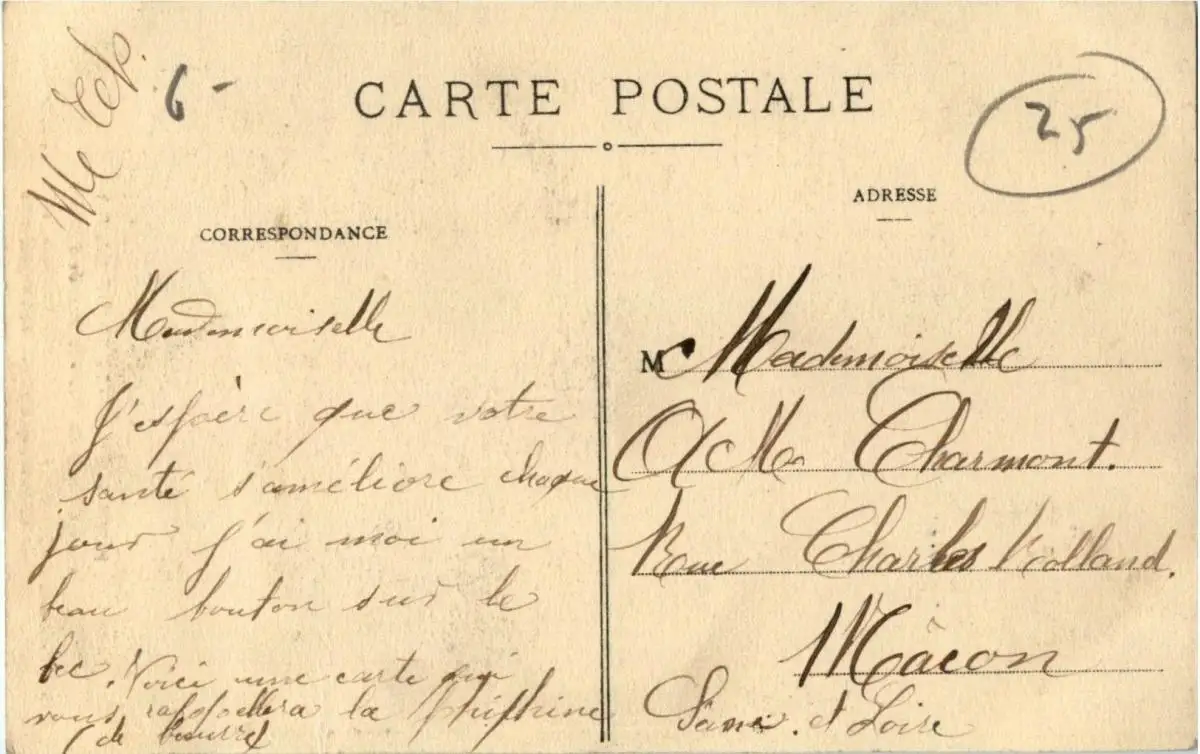 6-
CARTE POSTALE
25
CORRESPONDANCE
Mademoiselle
J'espère que votre
santé s'améliore chaque
jour j'ai moi un
beau bouton sur le
bec. Voici une carte qui
vous rappellera la
de
ADRESSE
M Mademoiselle
Charmont.
Rue Charles Rolland.
Mâcon
Saône et Loire